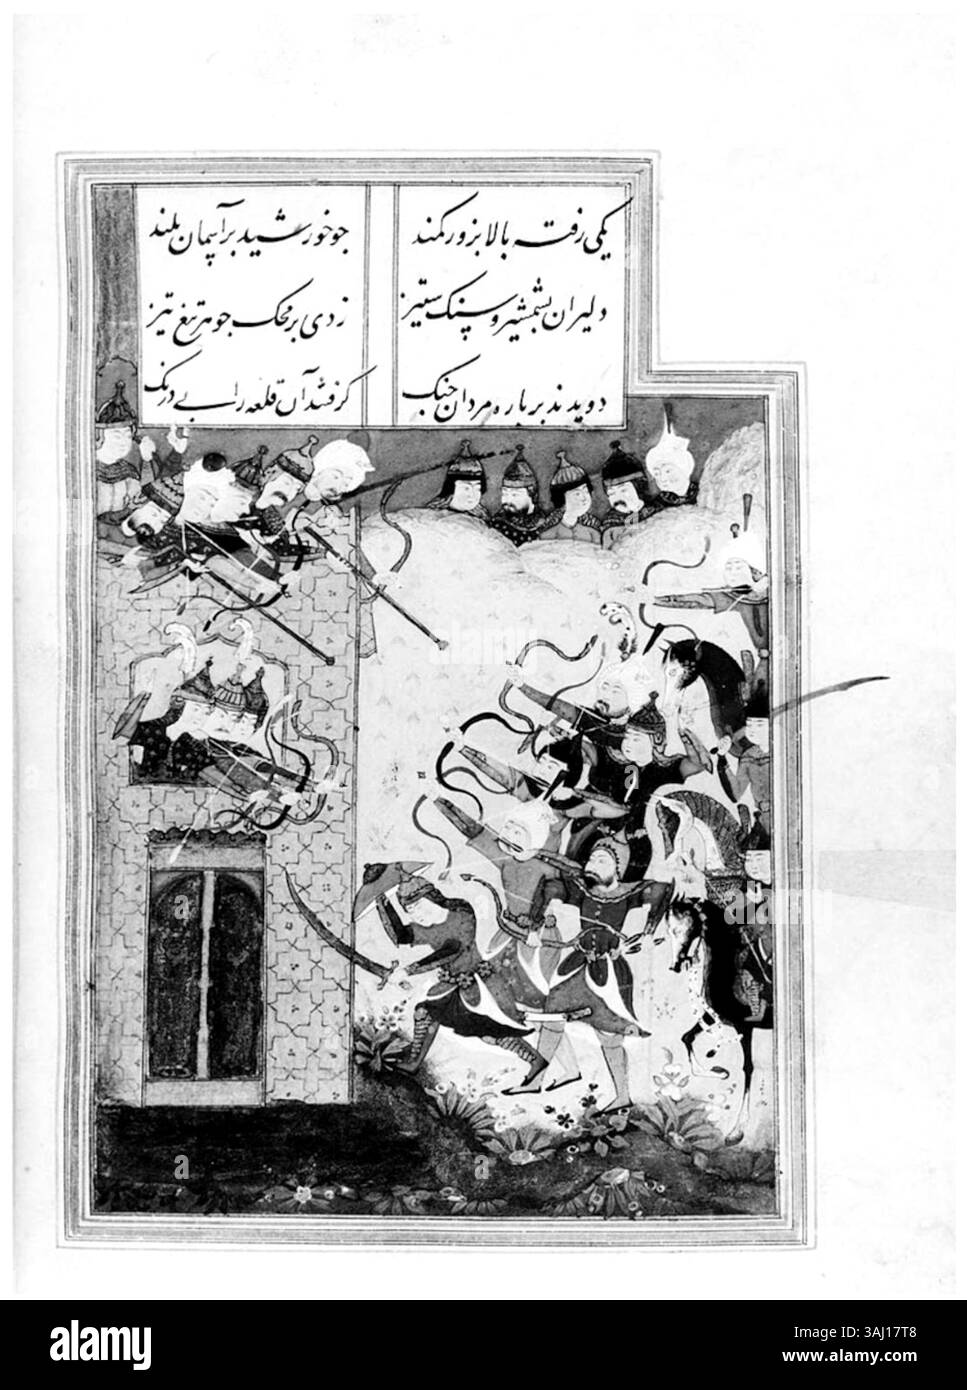 یکی رفته بالا بزور کمند جو خورشید بر آسمان بلند
دلیران بشمشیر و سنک ستیز زدی بر محک جوهر تیغ تیز
دویدند بر باره مردان جنک کرفتند آن قلعه را بی درنک
alamy
alamy
Image ID: 3AJ17T8
www.alamy.com